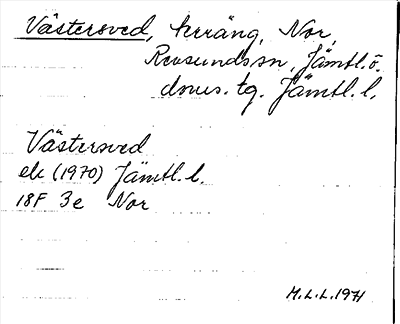 Västersved, terräng, Nor,
Revsunds sn, Jämtl. ö.
dvus. tg. Jämtl. l.
Västersved
ek (1970) Jämtl. l.
18F 3e Nor
M.L.L. 1971